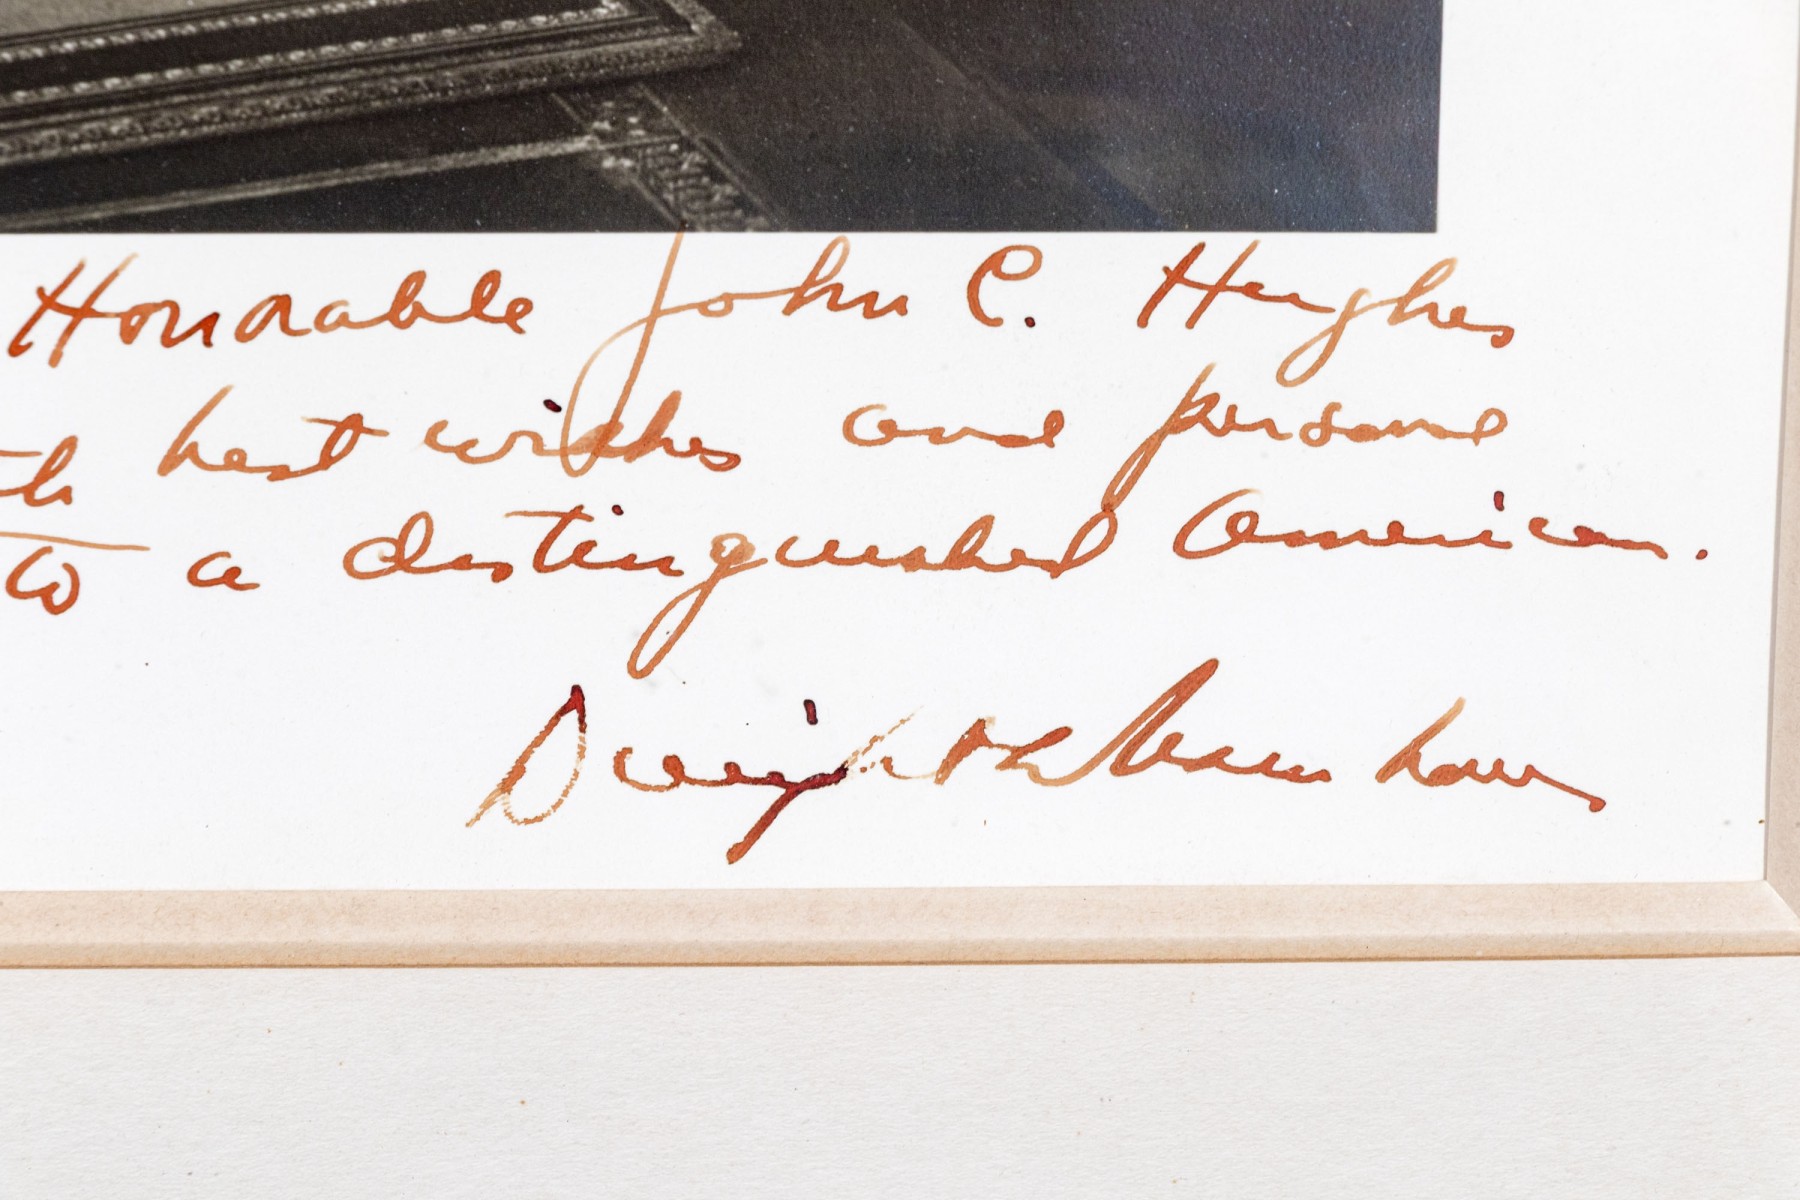 Honorable John C. Hughes
th best wishes and personal
to a distinguished American.
Dwight D Eisenhower